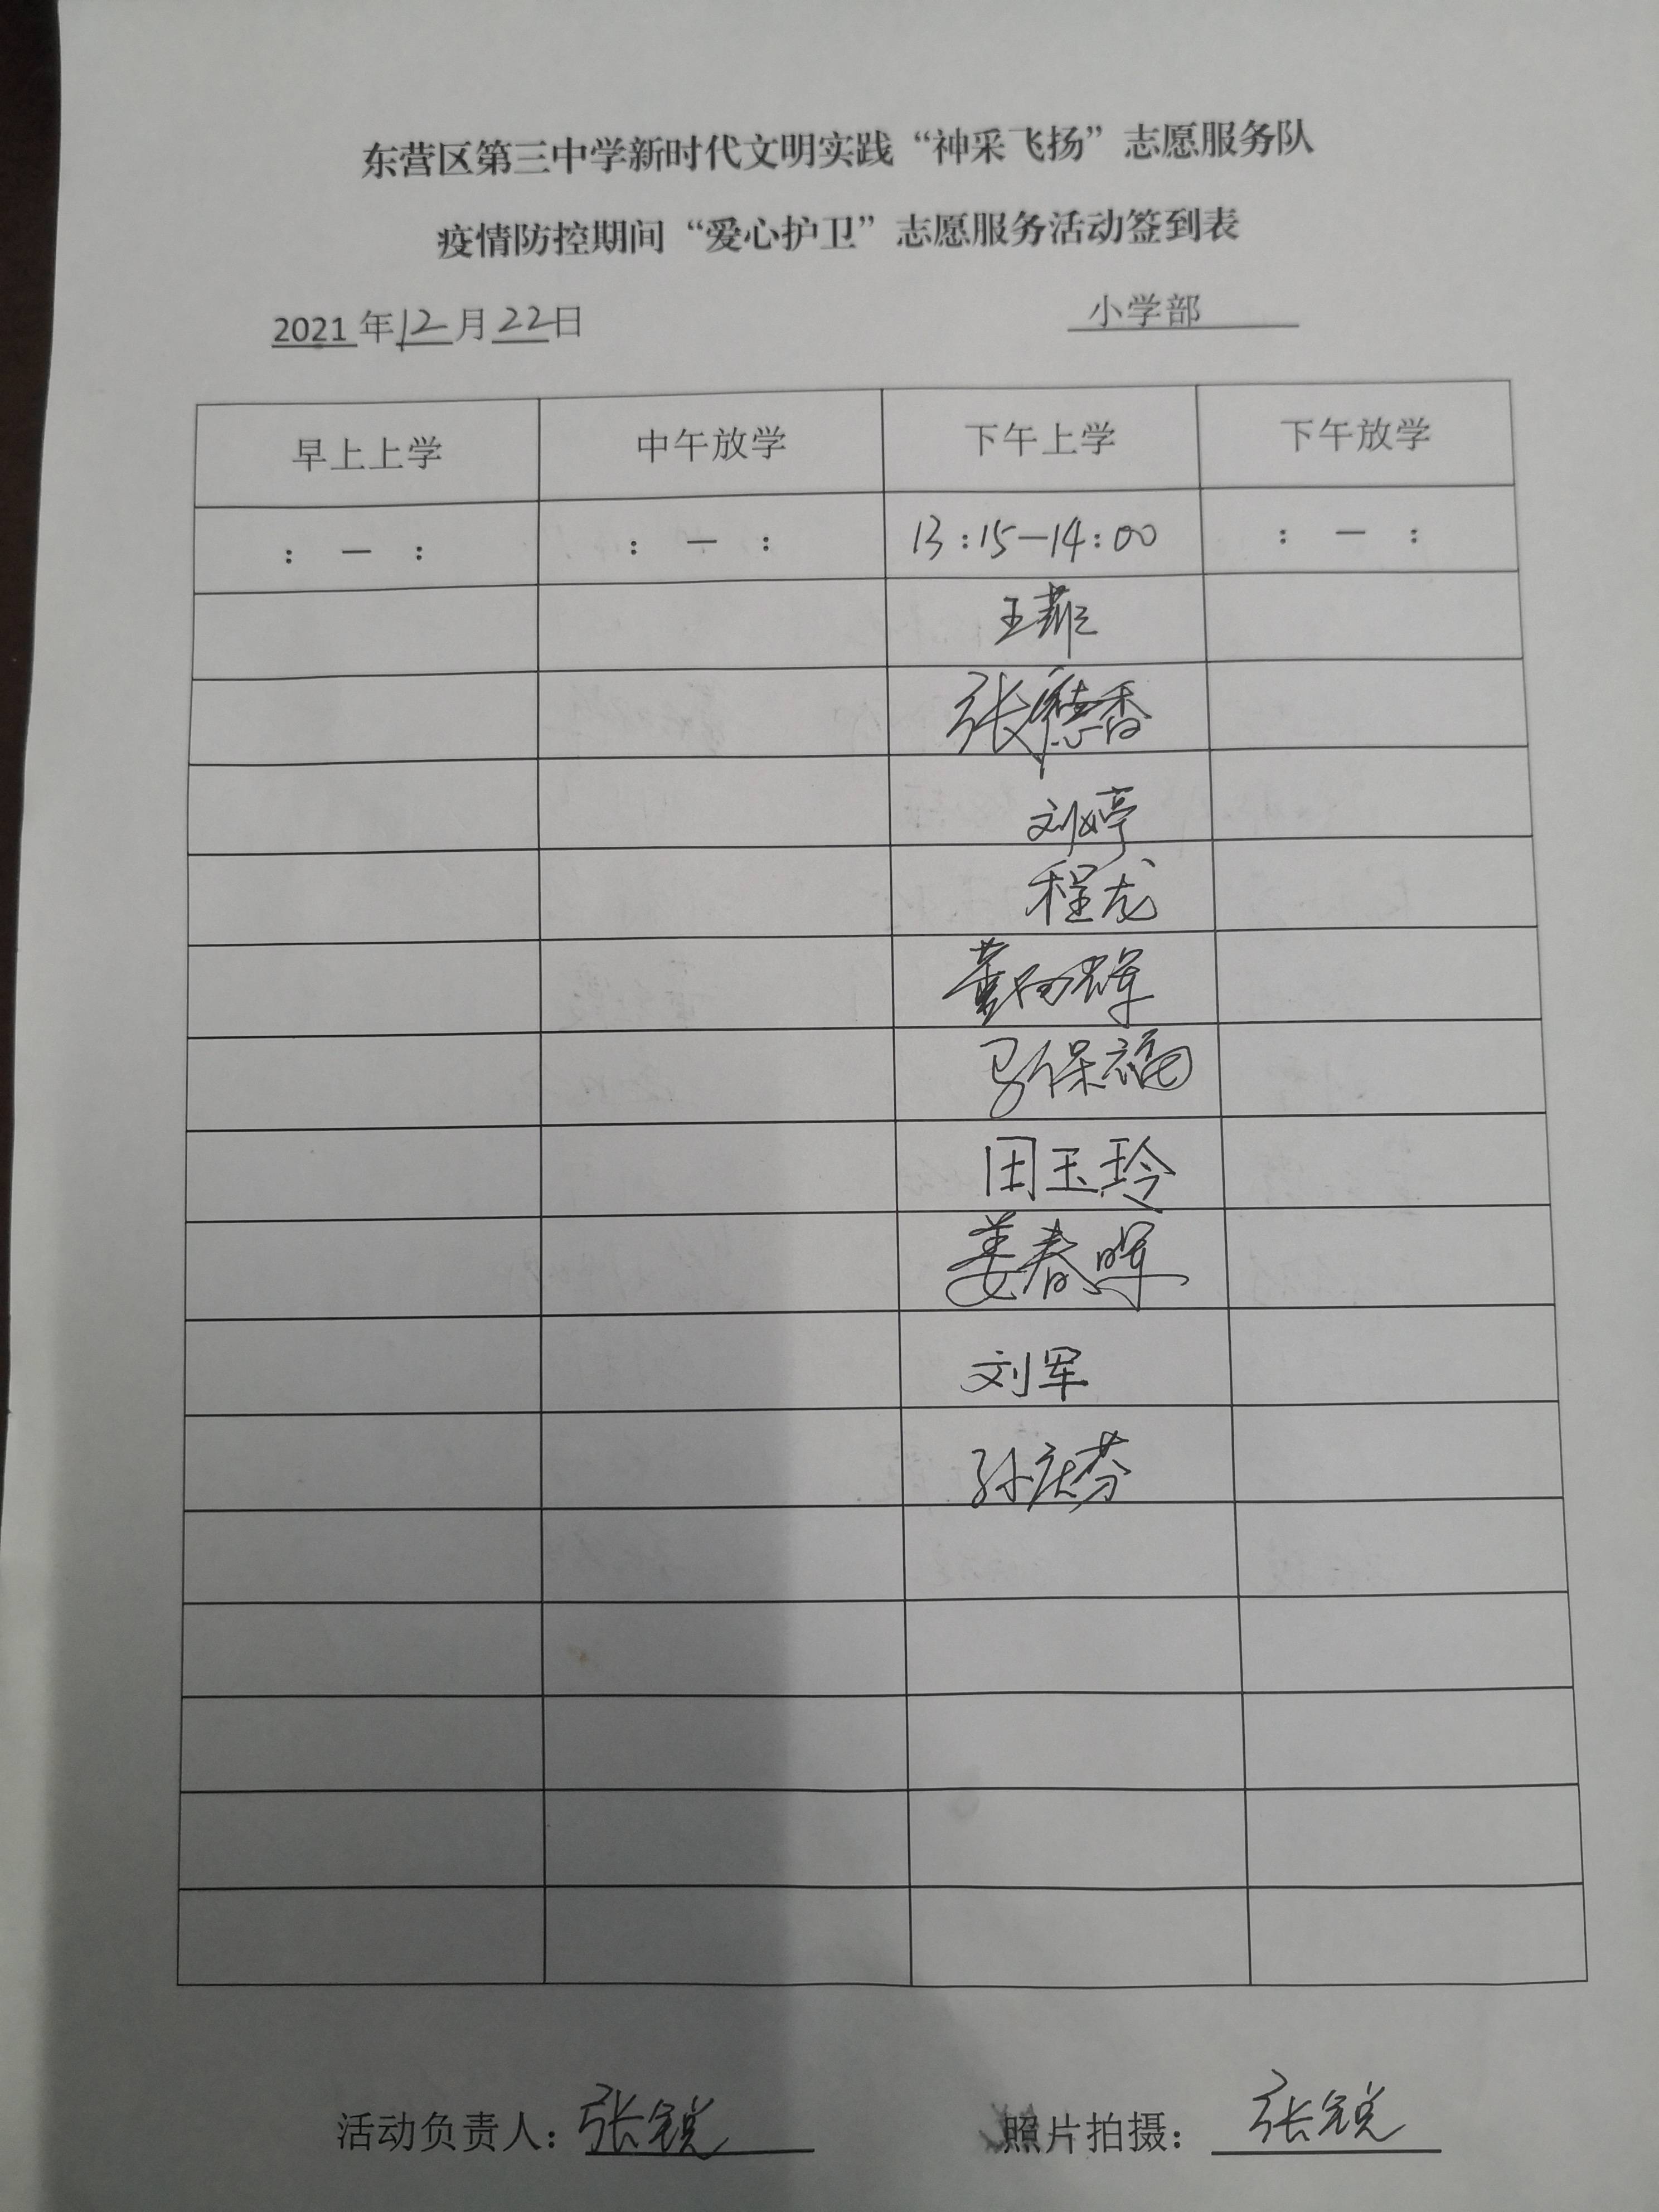 东营区第三中学新时代文明实践“神采飞扬”志愿服务队
疫情防控期间“爱心护卫”志愿服务活动签到表
2021年12月22日 小学部
早上上学 中午放学 下午上学 下午放学
: — : : — : 13:15—14:00 : — :
王菲
张德香
刘婷
程龙
董向辉
马保福
田玉玲
姜春晖
刘军
孙庆芬
活动负责人:张锐 照片拍摄:张锐